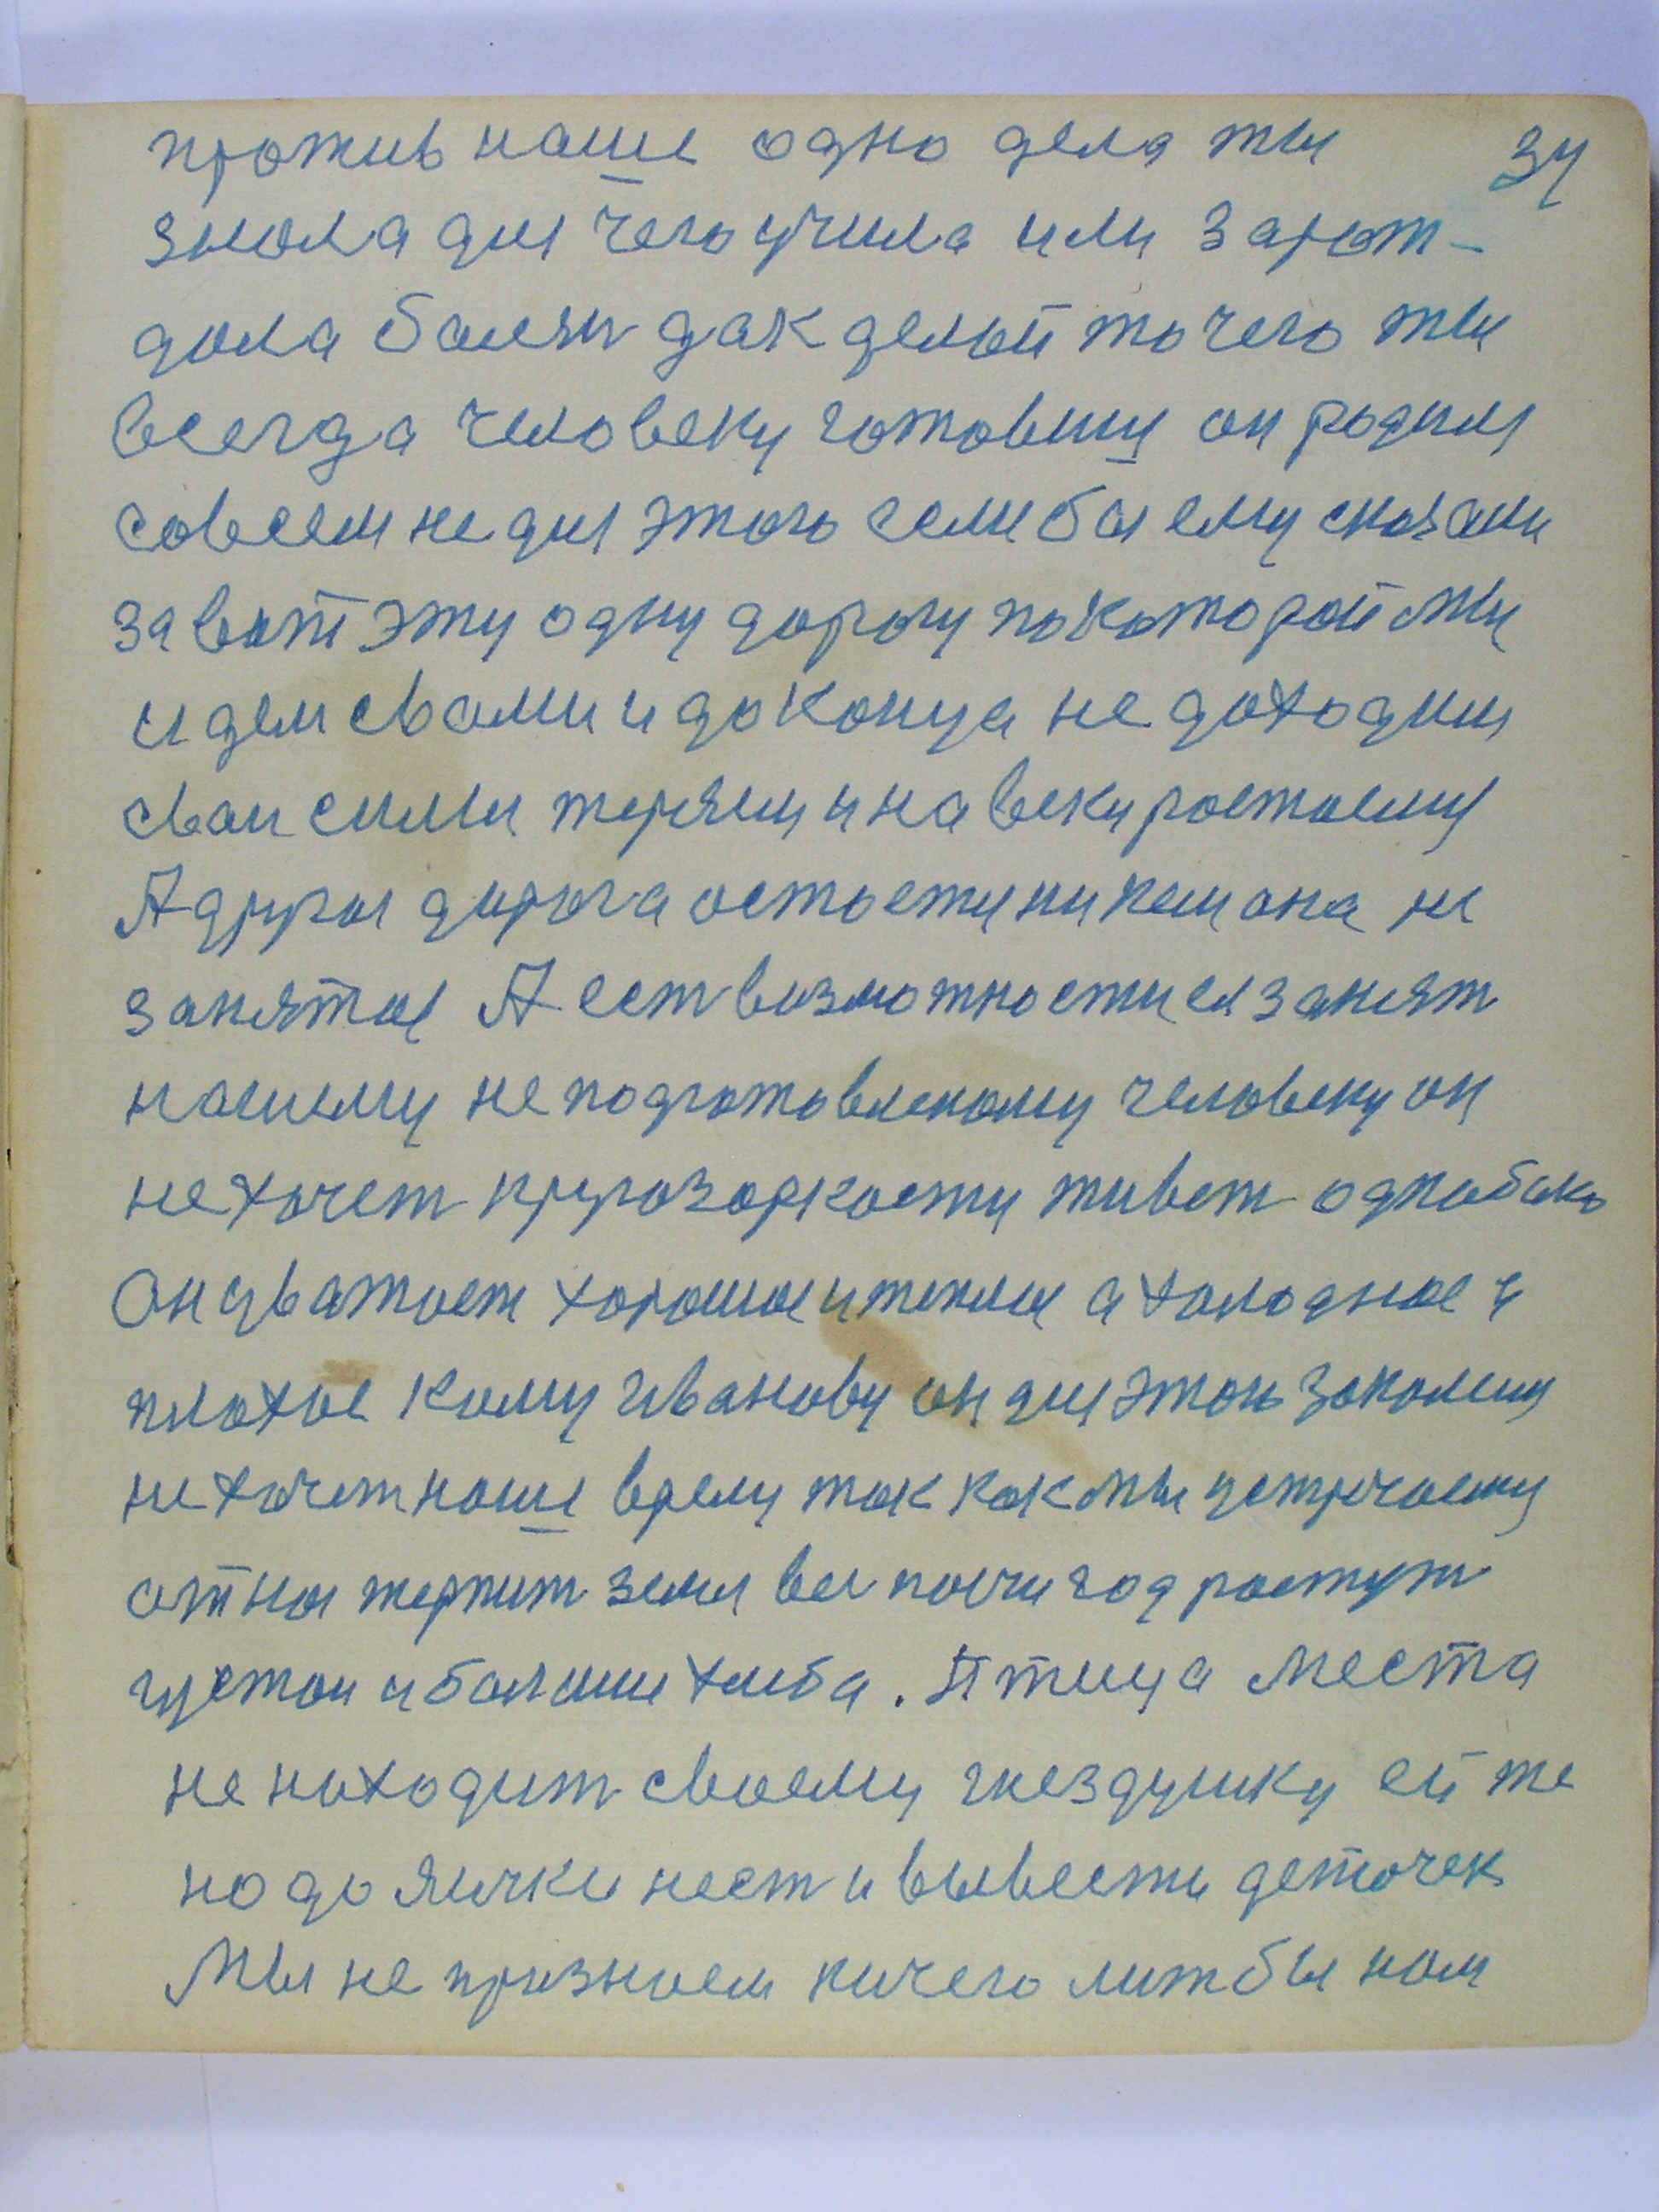 против наше одно дела ты 34
знола для чего учила или зарож-
дола болезн дак делой то чего ты
всегда человеку готовиш он родил
совсем не для этого если бы ему сказали
за вот эту одну дорогу по которой мы
идем свами и до конца не доходим
сваи силы теряем и навеки ростоемы
А другоя дорога остоети никем она не
занятоя А ест возможности ея занят
нашему не подготовленому человеку он
не хочет кругозоркости живет однобоко
Он уважоет хорошое и теплое а холодное и
плохое кому Иванову он для этого законому
не хочет наше время ток как мы устречоемы
от ноя терпит земля все почи год ростут
густои и болшие хлеба. Птица места
не находит своему гнездушку ей же
нодо яички нест и вывести деточек
Мы не признаем ничего лиж бы нам